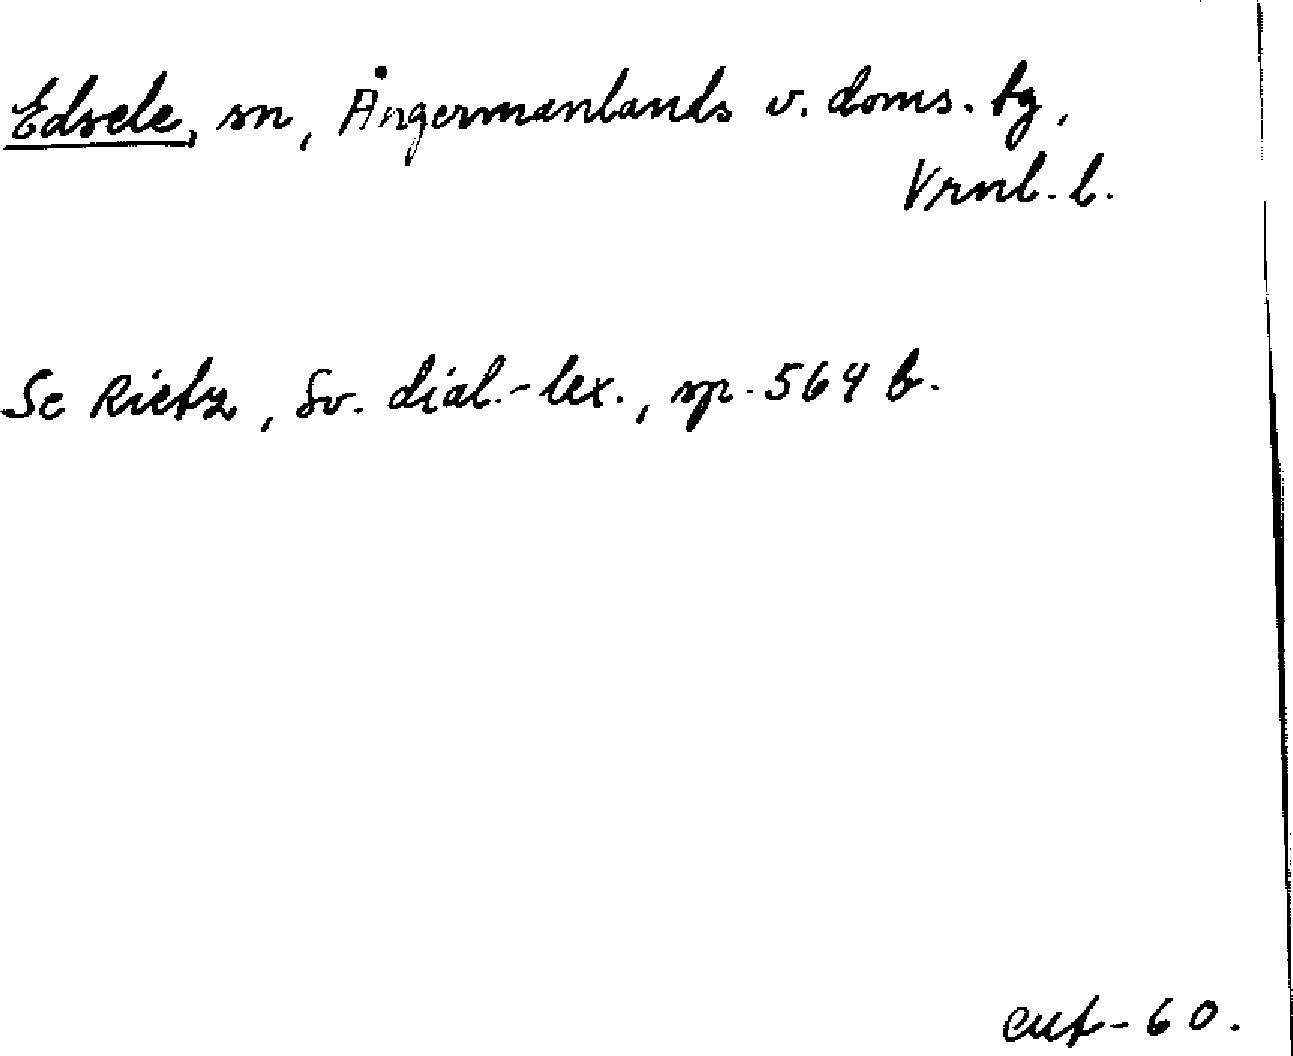 Edsele, sn, Ångermanlands v. doms. tg,
Vrnl. l.
Se Rietz, Sv. dial.-lex., sp. 564 b.
cut-60.